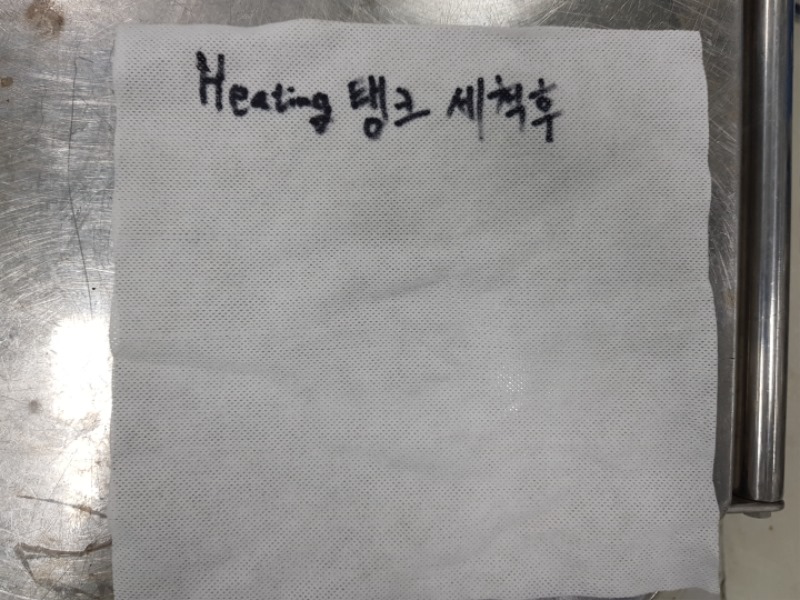 Heating 탱크 세척후